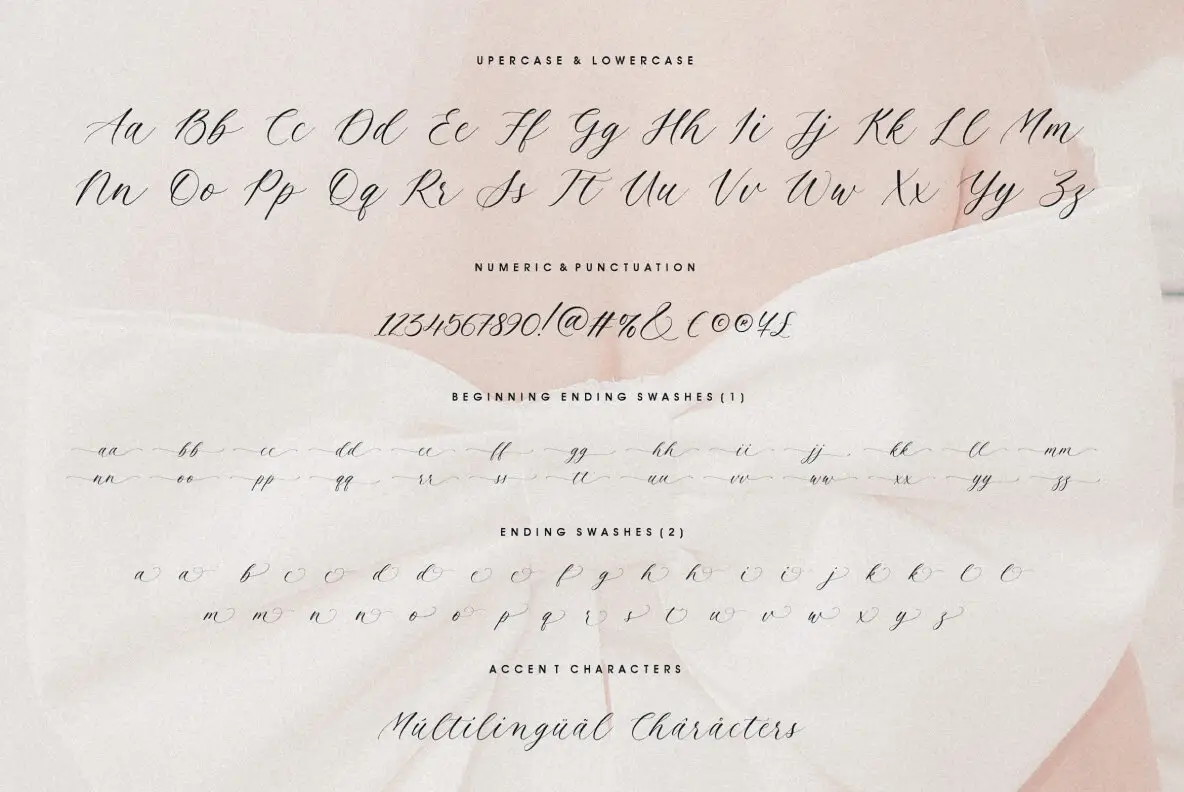 UPERCASE & LOWERCASE
Aa Bb Cc Dd Ee Ff Gg Hh Ii Jj Kk Ll Mm
Nn Oo Pp Qq Rr Ss Tt Uu Vv Ww Xx Yy Zz
NUMERIC & PUNCTUATION
1234567890!@#%& ( © ® ¥ £
BEGINNING ENDING SWASHES (1)
aa bb cc dd ee ff gg hh ii jj kk ll mm
nn oo pp qq rr ss tt uu vv ww xx yy zz
ENDING SWASHES (2)
a a b c c d d e e f g h h i i j k k l l
m m n n o o p q r s t u v w x y z
ACCENT CHARACTERS
Múltilingüãl Chârácters